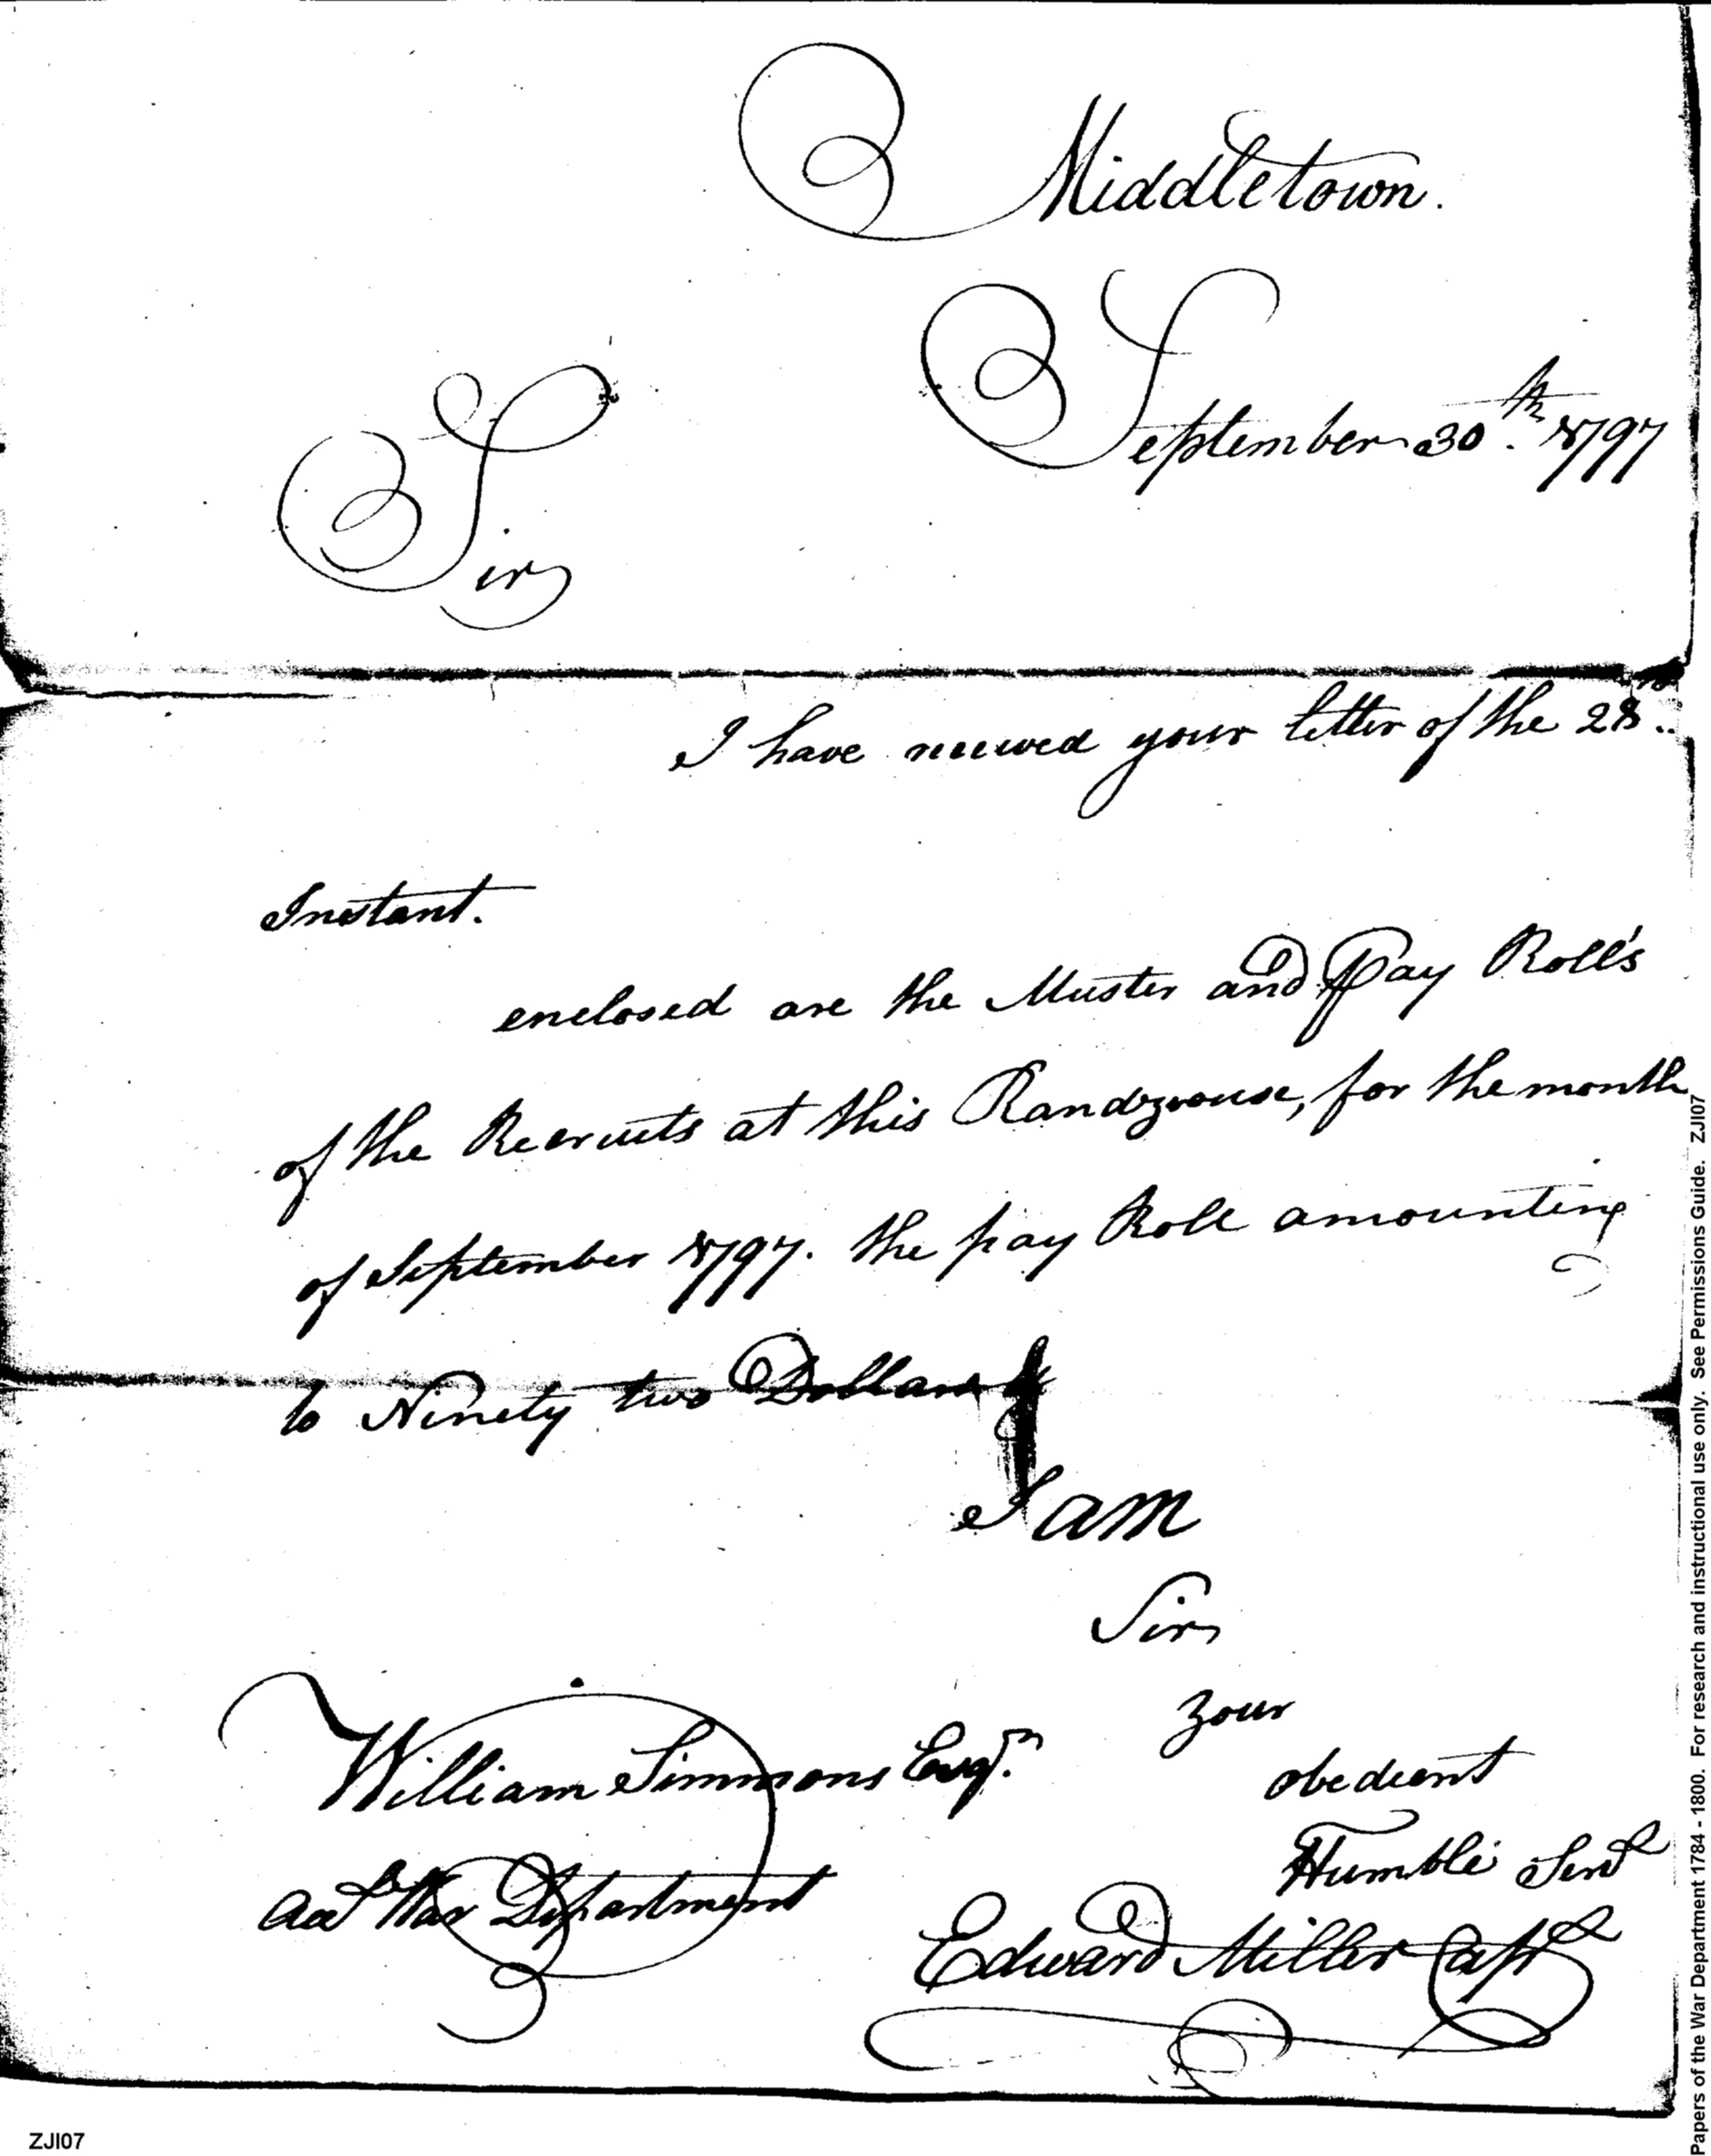 Middletown.
September 30th. 1797
Sir
I have received your letter of the 28th..
Instant.
enclosed are the Muster and Pay Roll's
of the Recruits at this Randezvouse, for the month
of September 1797. the pay Roll amounting
to Ninety two Dollars
I am
Sir
your
obedient
Humble Servt
William Simmons Esqr.
Acct War Department
Edward Miller Capt
Papers of the War Department 1784 - 1800. For research and instructional use only. See Permissions Guide. ZJI07
ZJI07